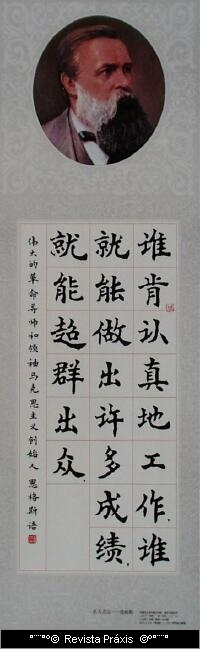 谁肯认真地工作，谁
就能做出许多成绩，
就能超群出众，
伟大的革命导师和领袖马克思主义创始人恩格斯语
© Revista Práxis @